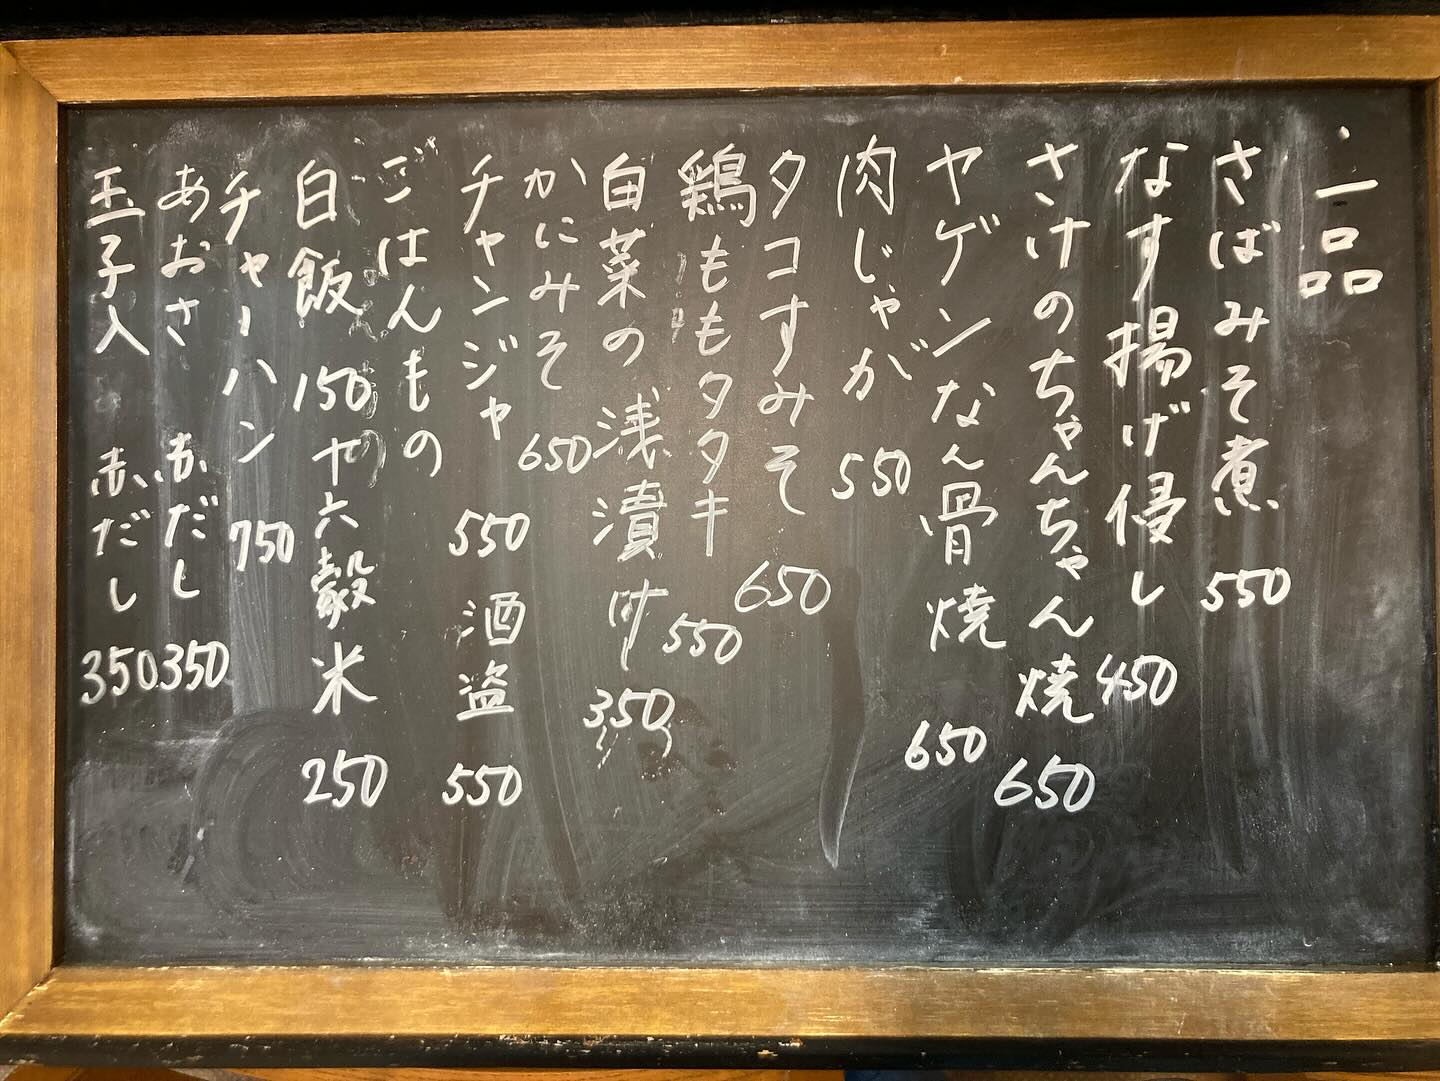 一品
さばみそ煮 550
なす揚げ侵し 450
さけのちゃんちゃん焼 650
ヤゲンなん骨焼 650
肉じゃが 550
タコすみそ 650
鶏ももタタキ 550
白菜の浅漬け 350
かにみそ 650
チャンジャ 550 酒盗 550
ごはんもの
白飯 150 十六穀米 250
チャーハン 750
あおさ 赤だし 350
玉子入 赤だし 350